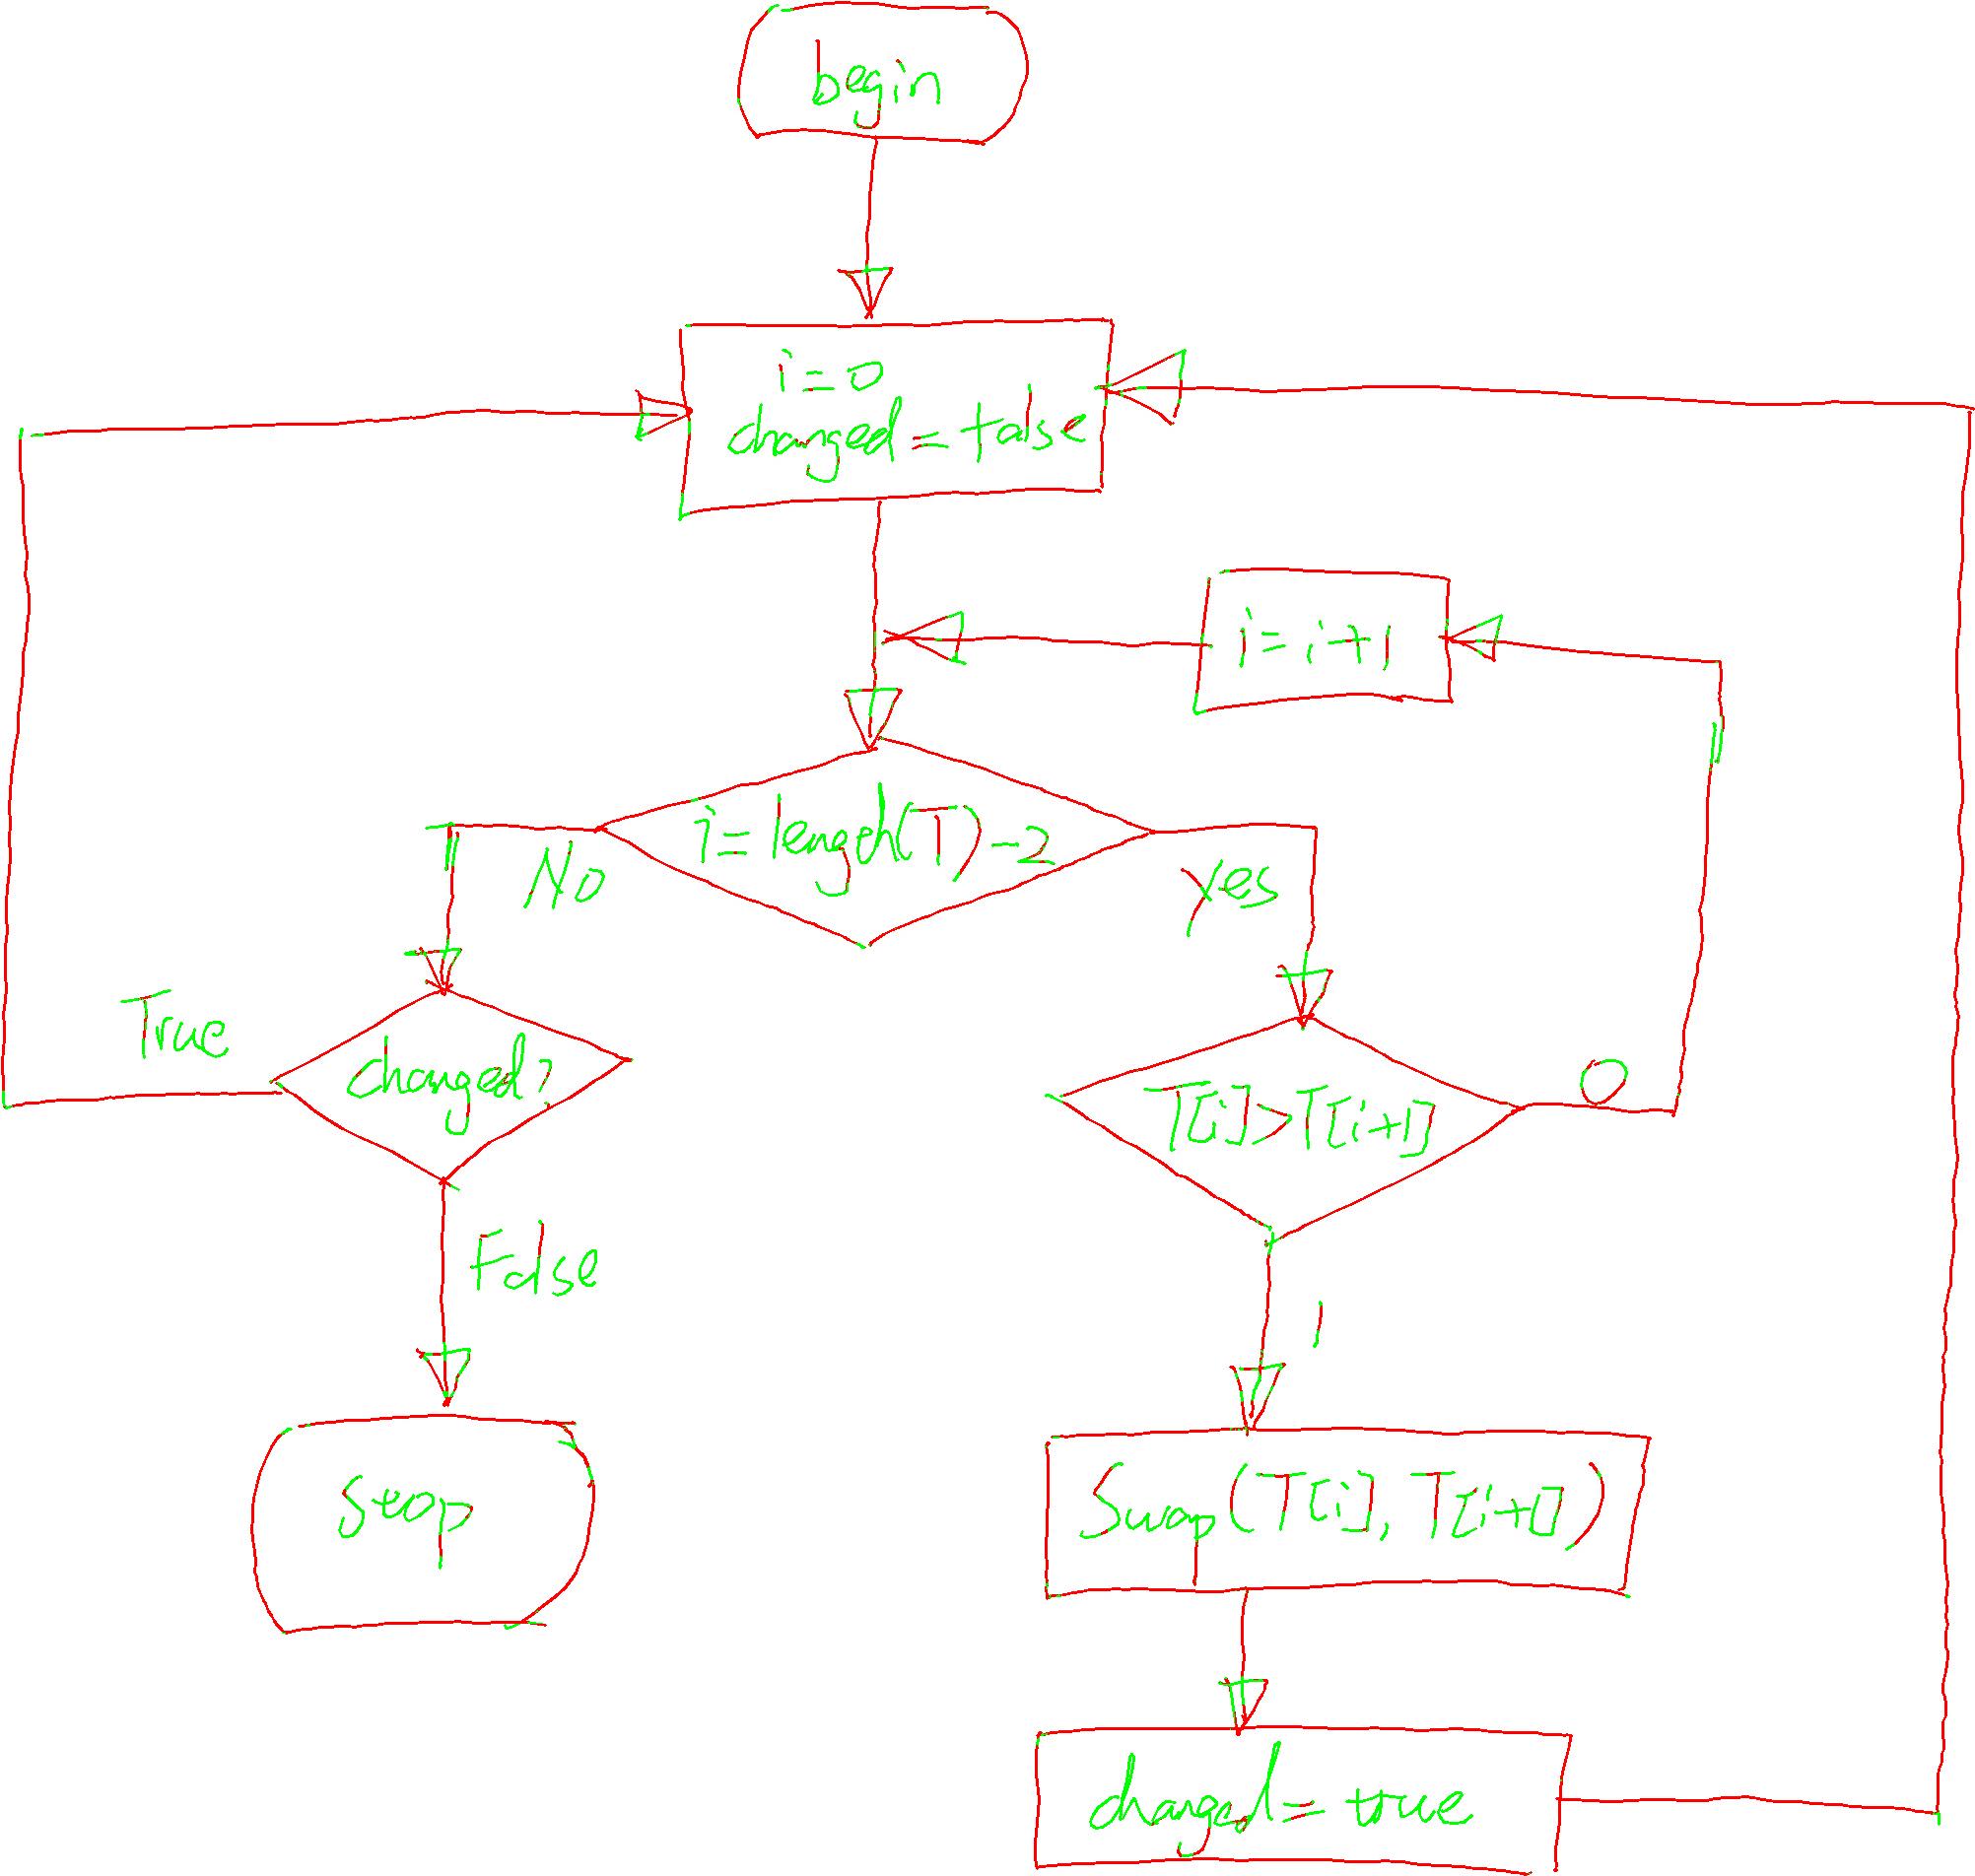 begin
i=0
changed=false
i=i+1
i=length(T)-2
No
yes
True
changed?
T[i]>T[i+1]
0
False
1
Stop
Swap(T[i], T[i+1])
changed=true